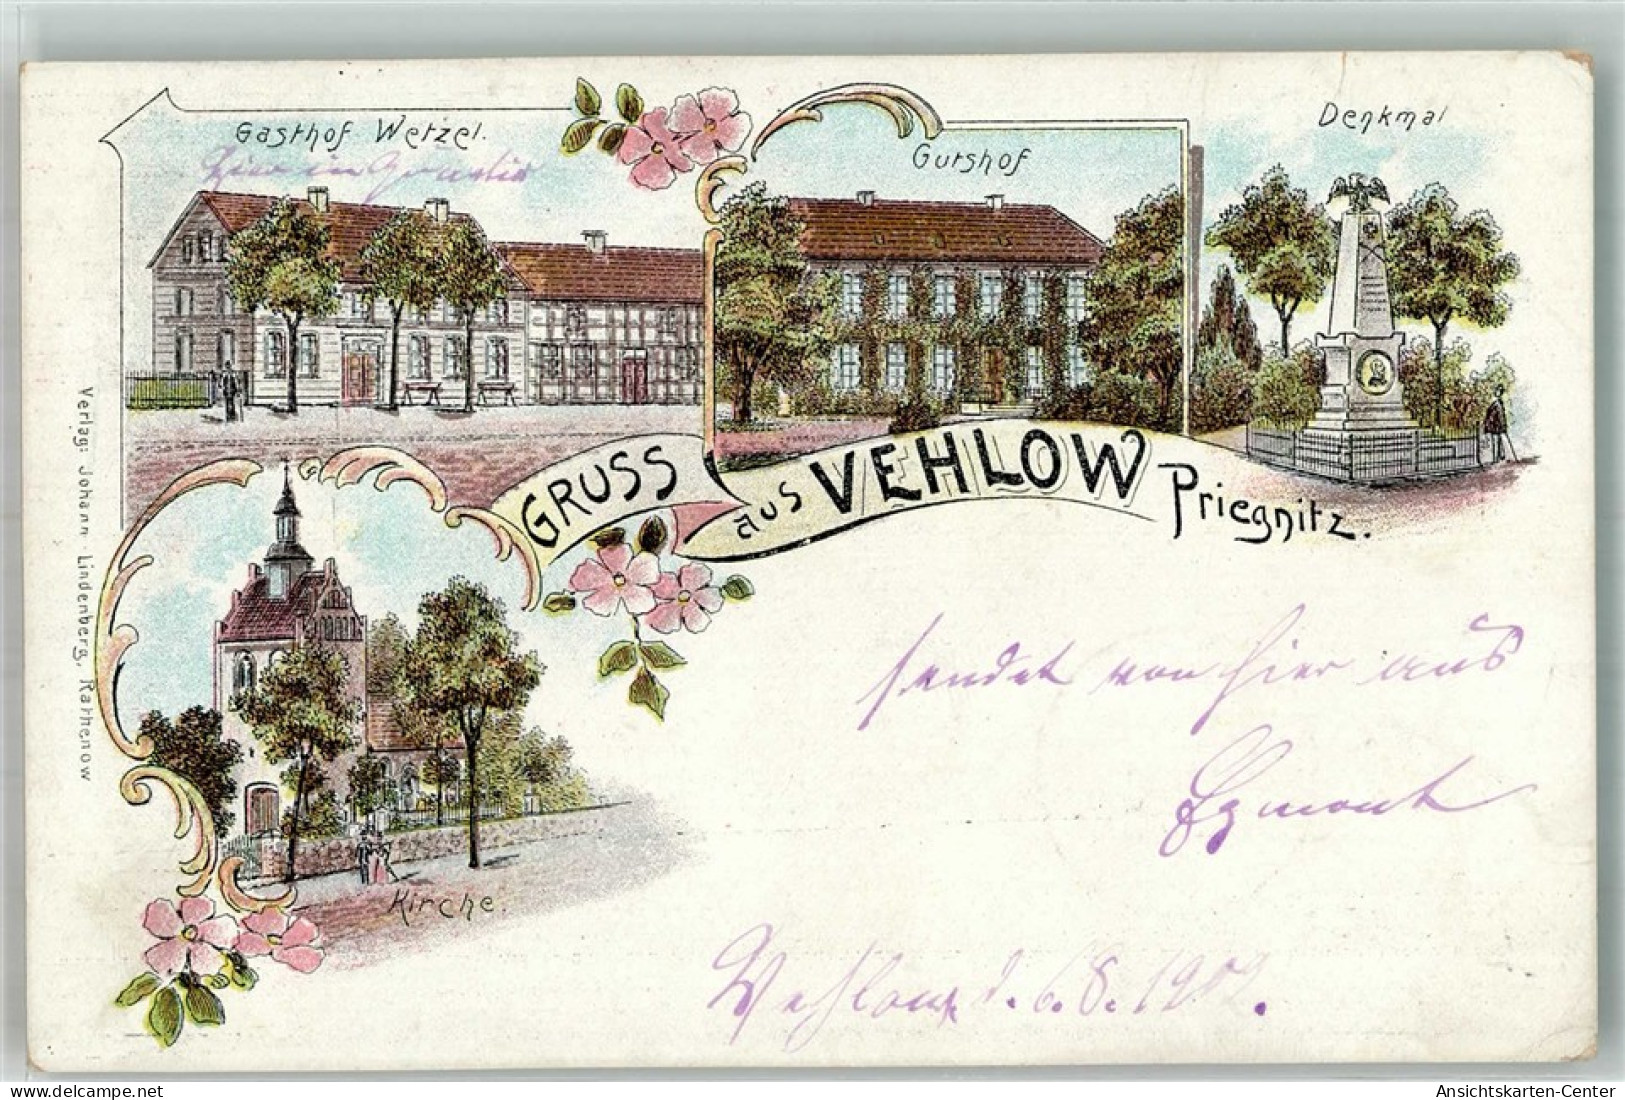 Gasthof Wetzel.
Hier in
Gutshof
Denkmal
GRUSS aus VEHLOW Priegnitz.
Verlag: Johann Lindenberg, Rathenow
sendet von hier aus
Egmont
Kirche.
Vehlow, d. 6.8.1902.
delcampe.net
Ansichtskarten-Center